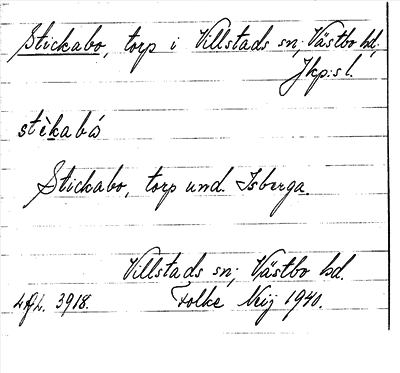 Stickabo, torp i Villstads sn; Västbo hd;
Jkp:s l.
stìkabó
Stickabo, torp und. Isberga.
Villstads sn; Västbo hd.
3918. Folke 1940.